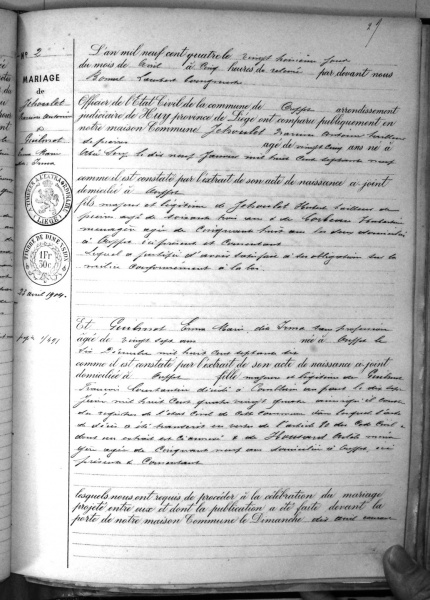 29
N° 2
MARIAGE
de
&
L'an mil neuf cent quatre le vingt troisième jour
du mois de avril à cinq heures de relevée par devant nous
Lambert
Officier de l'Etat Civil de la commune de Ouffet arrondissement
judiciaire de Huy province de Liège ont comparu publiquement en
notre maison Commune
de pierres agé de vingt cinq ans né à
le dix neuf Janvier mil huit cent septante neuf
comme il est constaté par l'extrait de son acte de naissance a-joint
domicilié à Ouffet
fils majeur et légitime de Hubert tailleur de
pierres agé de soixante trois ans & de
ménagère agée de cinquante huit ans les deux domiciliés
à Ouffet ici présents et consentants
Lequel a justifié d'avoir satisfait à ses obligations sur la
milice conformément à la loi.
TIMBRE DE DIMENSION
1Fr
30c
23 avril 1904.
Et Emma Marie dite Irma sans profession
agée de vingt sept ans née à Ouffet le
six Décembre mil huit cent septante six
comme il est constaté par l'extrait de son acte de naissance a-joint
domiciliée à Ouffet fille majeure et légitime de
François Constantin décédé à Comblain au pont le dix sept
Juin mil huit Cent quatre vingt quatre ainsi qu'il conste
du registre de l'état civil de cette Commune dans lequel l'acte
de décès a été transcrit en vertu de l'article 80 du Code Civil
dont un extrait est ci annexé & de
agée de cinquante neuf ans domiciliée à Ouffet, ici
présente & Consentante
lesquels nous ont requis de procéder à la célébration du mariage
projeté entre eux et dont la publication a été faite devant la
porte de notre maison Commune le Dimanche dix avril courant